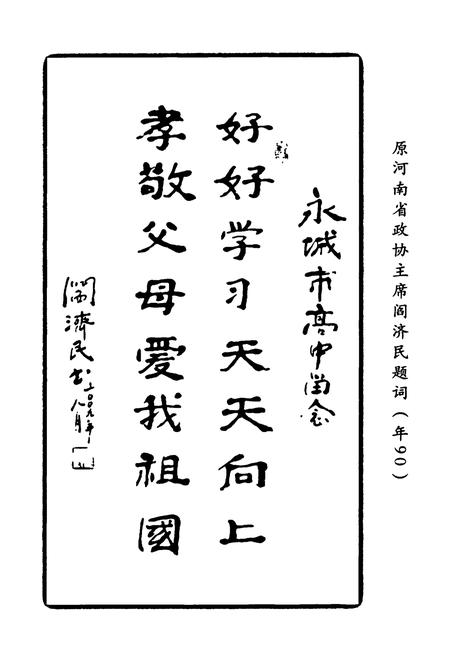 原河南省政协主席阎济民题词（年90）
永城市高中留念
好好学习天天向上
孝敬父母爱我祖國
閻濟民书二〇〇九年
八月